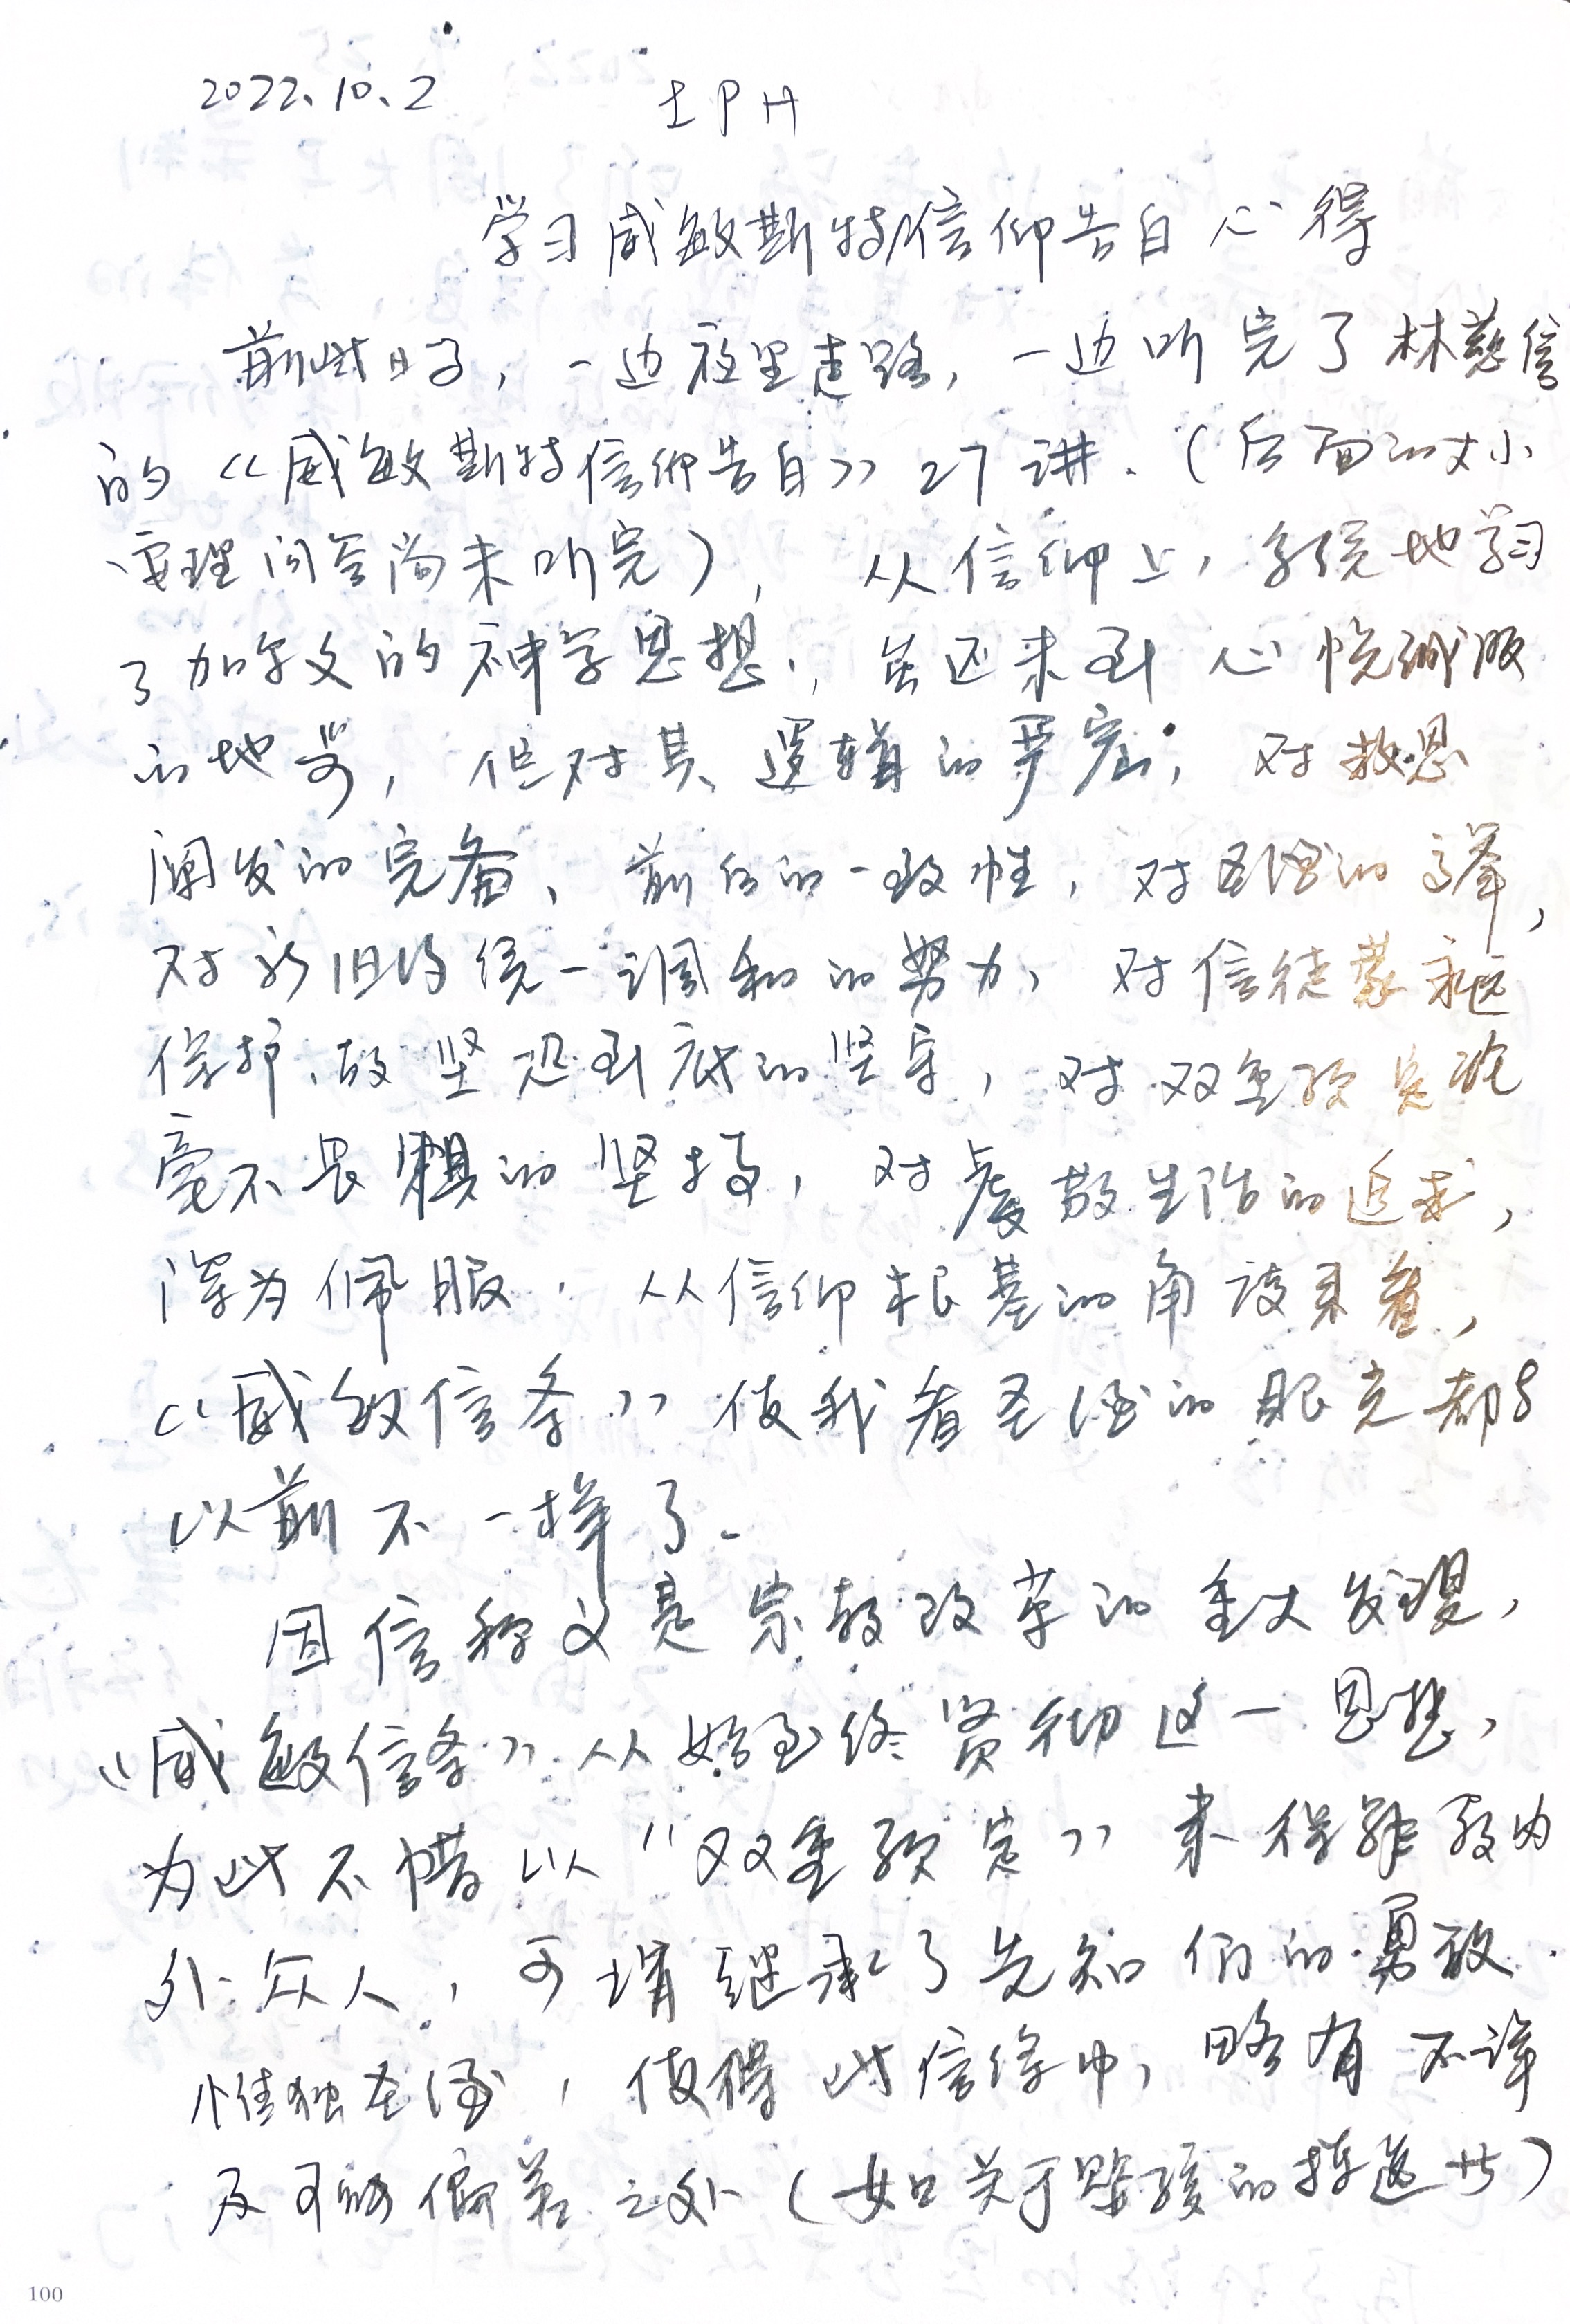 2022.10.2 土PH
学习威敏斯特信仰告白心得
前些日子，一边夜里走路，一边听完了林慈信
的《威敏斯特信仰告白》27讲.（后面的大小
要理问答尚未听完），从信仰上，系统地学习
了加尔文的神学思想，虽还未到心悦诚服
的地步，但对其逻辑的严密，对救恩
阐发的完备、前后的一致性，对圣经的高举，
对新旧约统一调和的努力，对信徒蒙永远
保护、故坚忍到底的坚守，对双重预定论
毫不畏惧的坚持，对虔敬生活的追求，
深为佩服．从信仰根基的角度来看，
《威敏信条》使我看圣经的眼光都与
以前不一样了.
因信称义是宗教改革的重大发现，
《威敏信条》从始至终贯彻这一思想，
为此不惜以“双重预定”来得罪教内
外众人，可谓继承了先知们的勇敢.
惟独圣经，使得此信条中，略有不详
及可能偏差之外（如关于婴孩的拣选节）
100